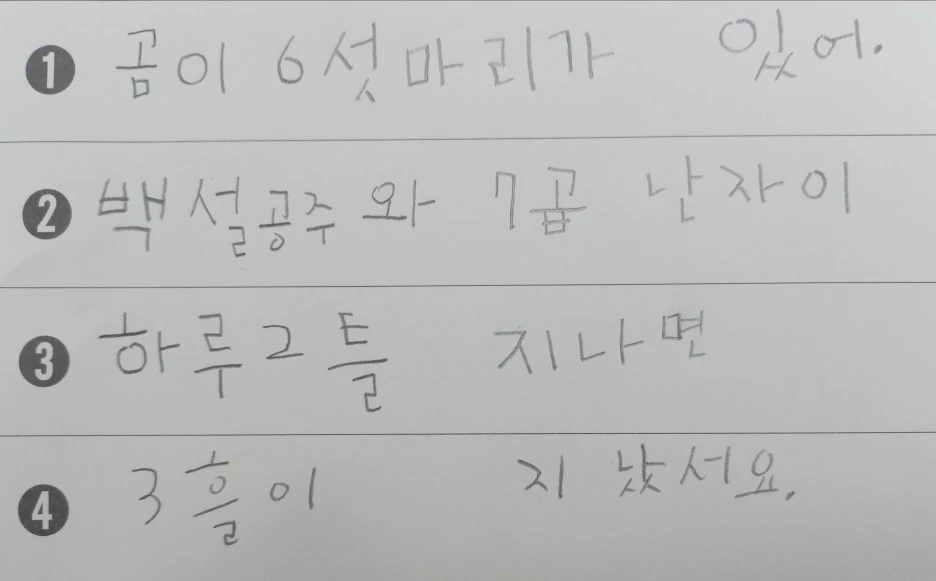 ❶ 곰이 6섯마리가 있어.
❷ 백설공주와 7곱 난자이
❸ 하루2틀 지나면
❹ 3흘이 지났서요.